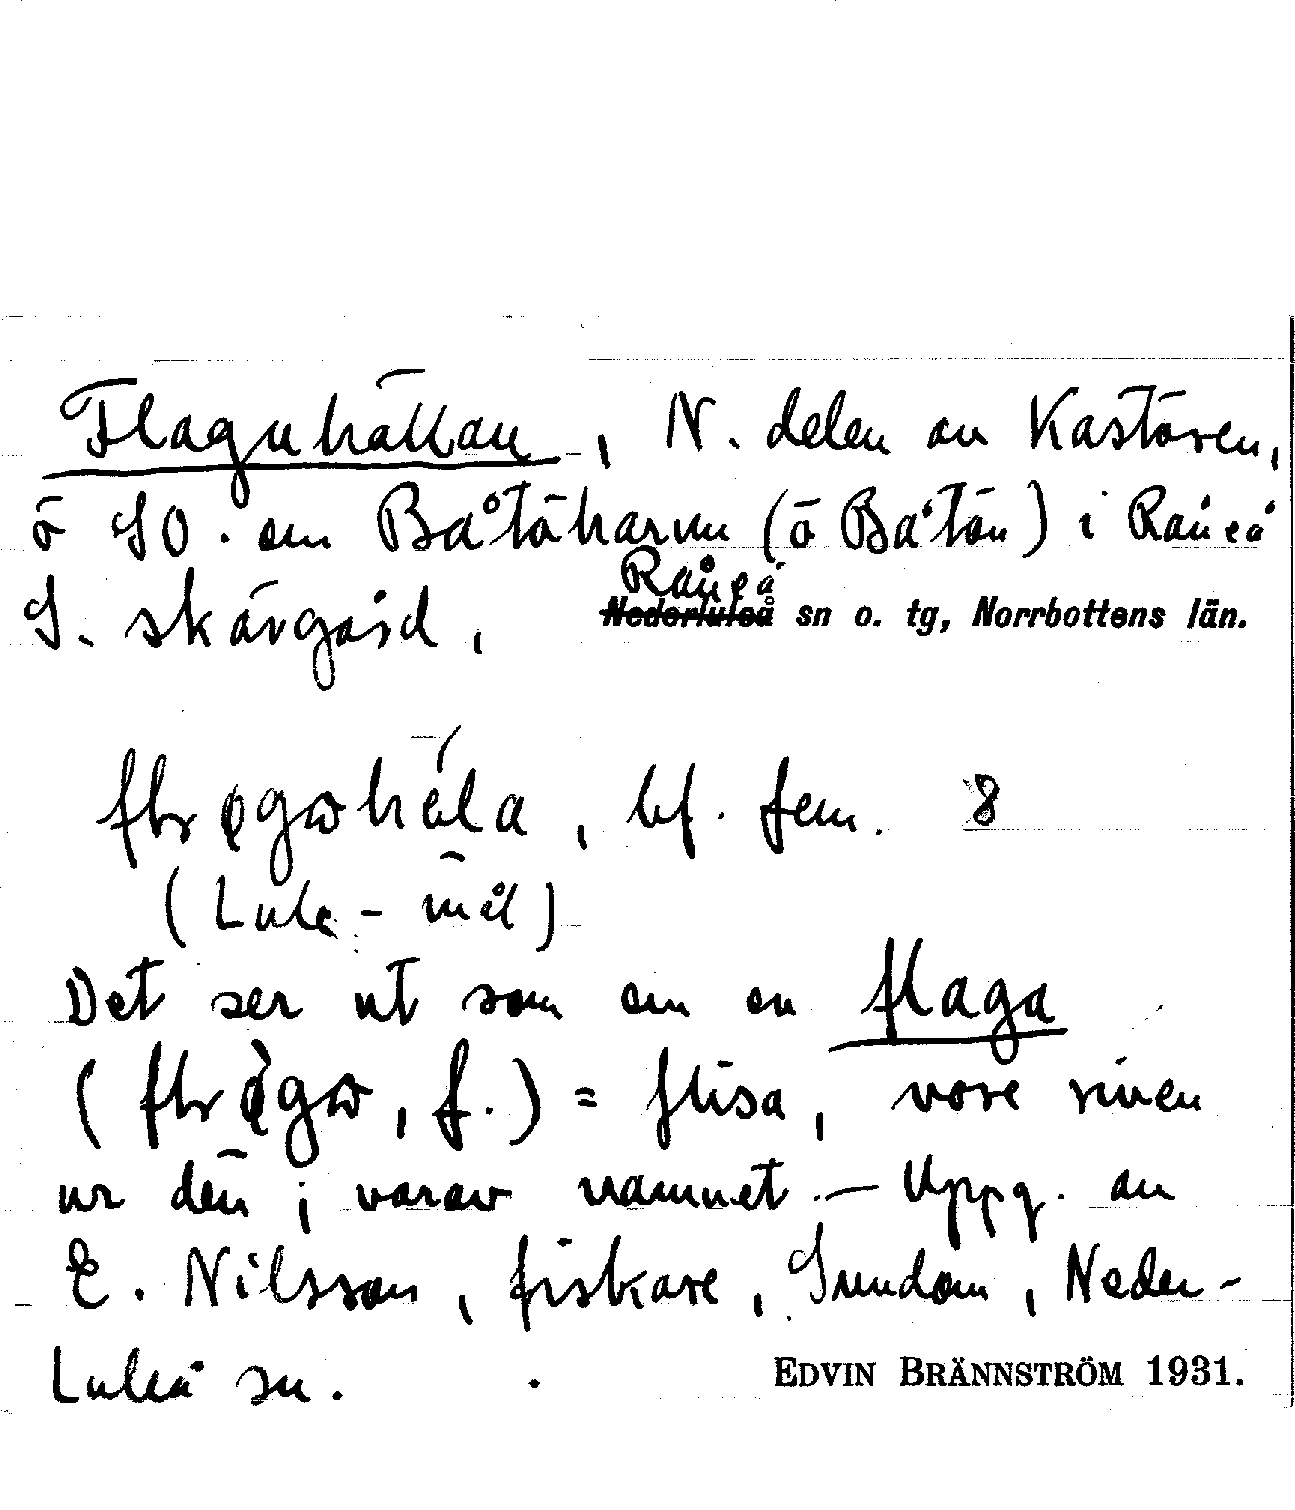 Flaguhällan, N. delen av Kastören,
ö SO. om Båtöharun (ö Båtön) i Råneå
Råneå
S. skärgård, Nederluleå sn o. tg, Norrbottens län.
bf. fem. 8
(Lule-mål)
Det ser ut som om en flaga
f.) = flisa, vore riven
ur den; varav namnet. — Uppg. av
E. Nilsson, fiskare, Sundom, Neder-
Luleå sn. EDVIN BRÄNNSTRÖM 1931.